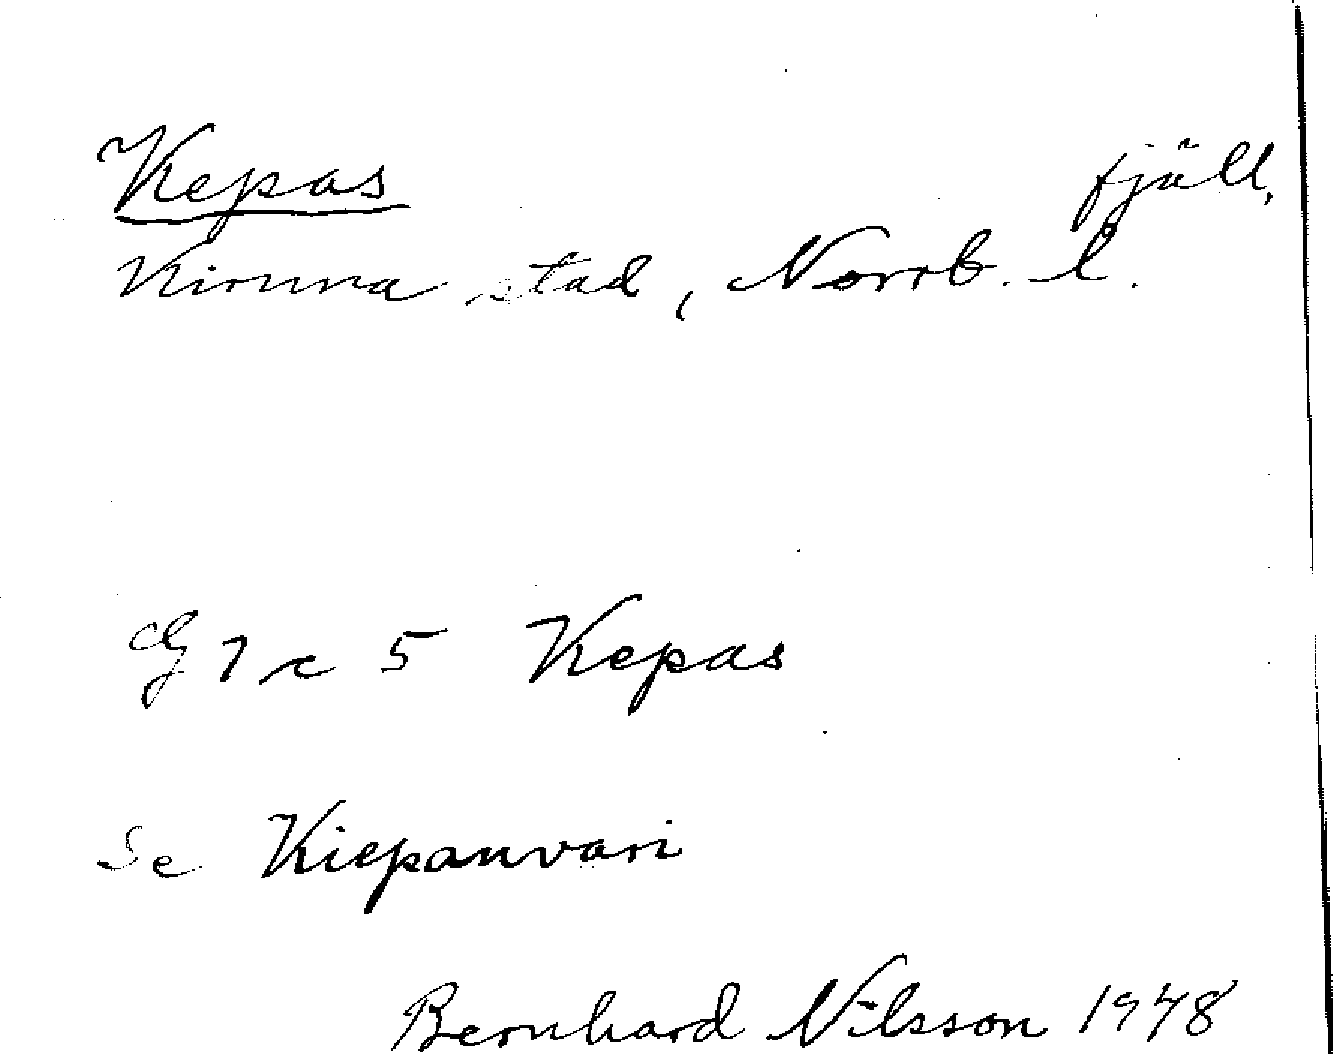 Kepas fjäll,
Kiruna stad, Norrb. l.
G 7 c 5 Kepas
Se Kiepanvari
Bernhard Nilsson 1948